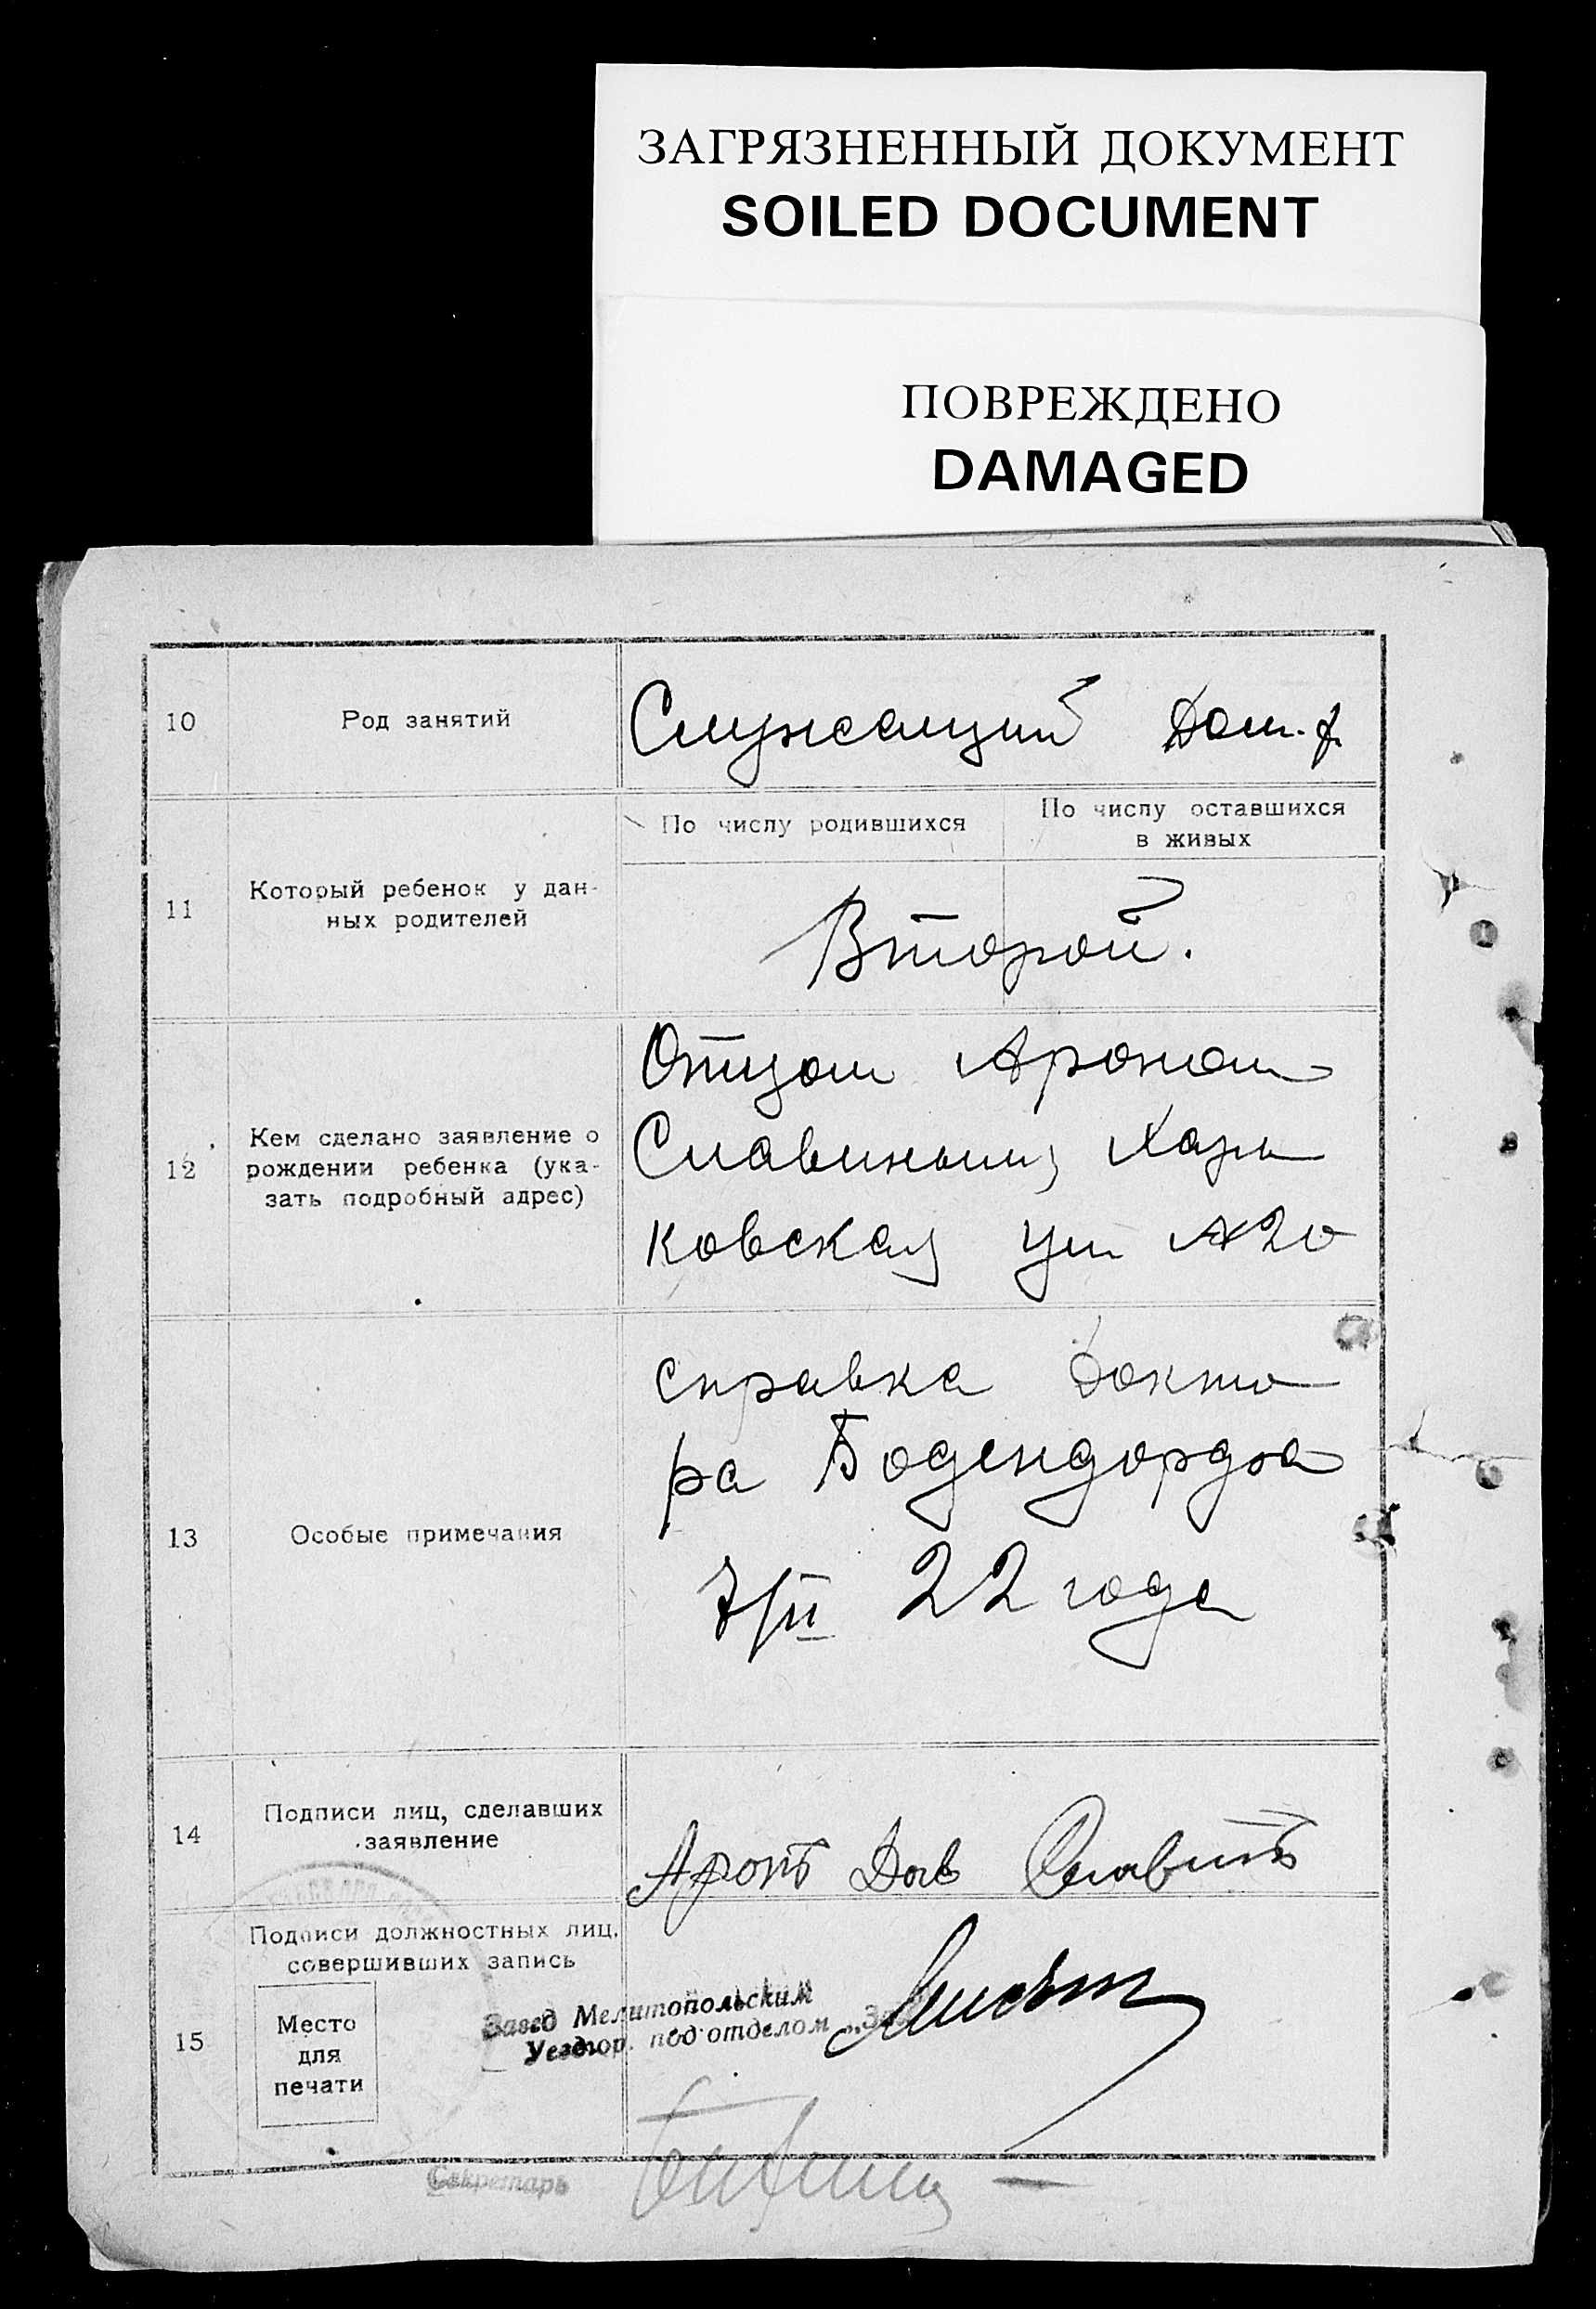 ЗАГРЯЗНЕННЫЙ ДОКУМЕНТ
SOILED DOCUMENT
ПОВРЕЖДЕНО
DAMAGED
10
Род занятий
Служащий Дом. х.
11
Который ребенок у дан-
ных родителей
По числу родившихся
По числу оставшихся
в живых
Второй.
12
Кем сделано заявление о
рождении ребенка (ука-
зать подробный адрес)
Отцом Ароном
Славиным, Харь
ковская ул №20
13
Особые примечания
справка докто
ра Бодендорфа
7/II 22 года
14
Подписи лиц, сделавших
заявление
Аронъ Дав Славинъ
15
Подписи должностных лиц,
совершивших запись
Место
для
печати
Завед Мелитопольским
Уездгор. под'отделом
Секретарь